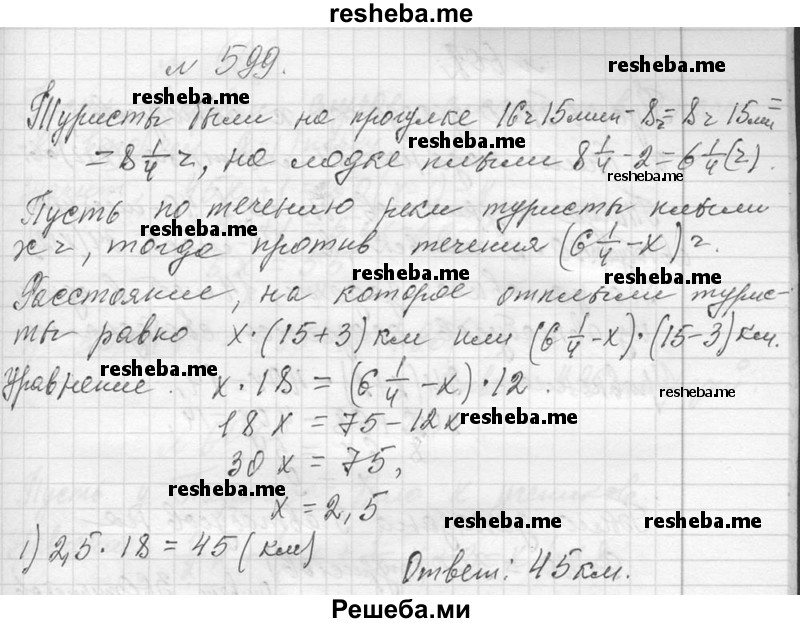 resheba.me
№ 599.
resheba.me
resheba.me
Туристы были на прогулке 16ч 15мин - 8ч = 8ч 15мин =
resheba.me
= 8 1/4 ч, на лодке плыли 8 1/4 - 2 = 6 1/4 (ч).
resheba.me
Пусть по течению реки туристы плыли
resheba.me
resheba.me
x ч, тогда против течения (6 1/4 - x) ч.
resheba.me
resheba.me
Расстояние, на которое отплыли турис-
ты равно x·(15+3) км или (6 1/4 - x)·(15-3) км.
resheba.me
resheba.me
Уравнение. x · 18 = (6 1/4 - x) · 12.
18x = 75 - 12x
resheba.me
30x = 75,
resheba.me
x = 2,5
resheba.me
resheba.me
1) 2,5 · 18 = 45 (км)
Ответ: 45км.
Решеба.ми